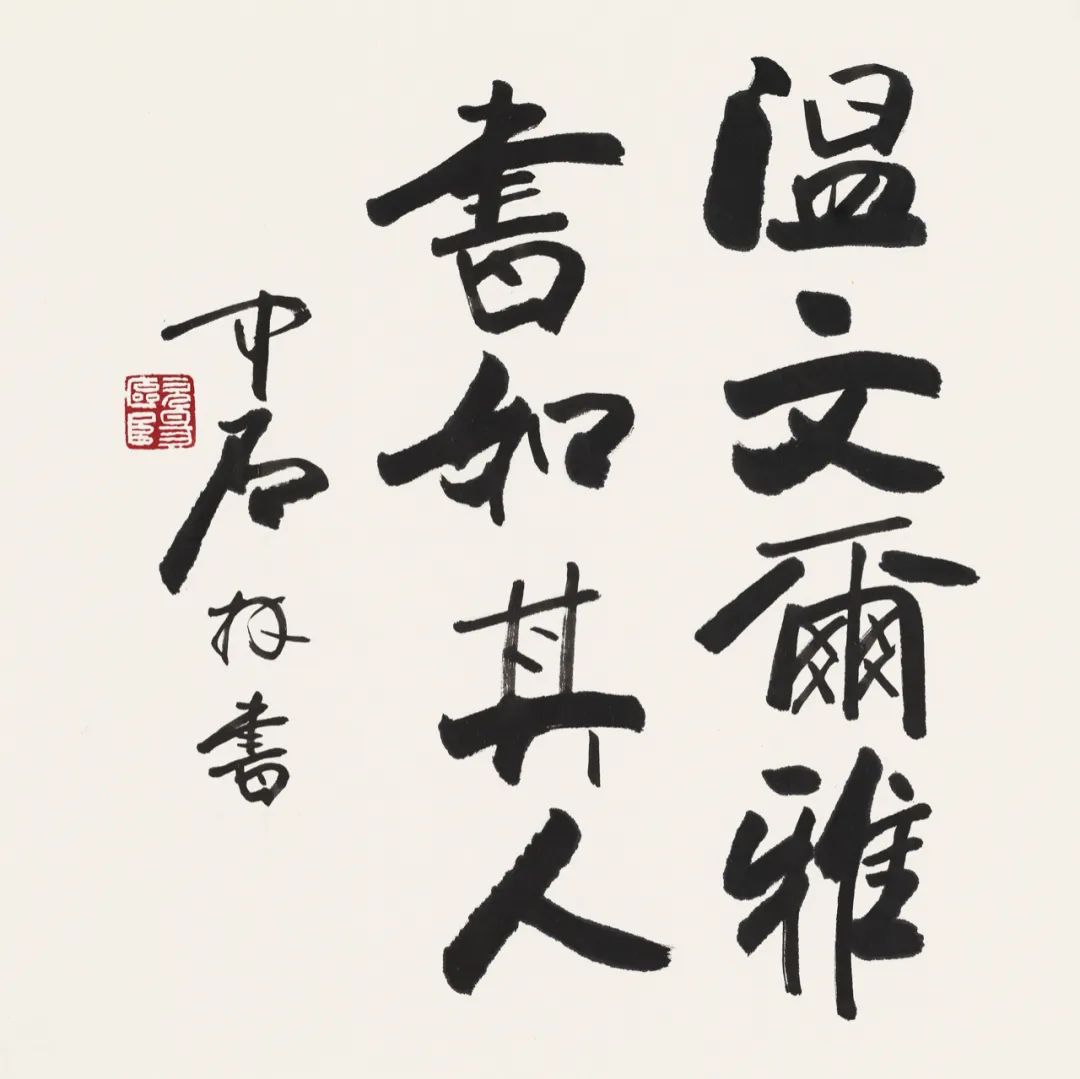 温文爾雅
書如其人
中石書